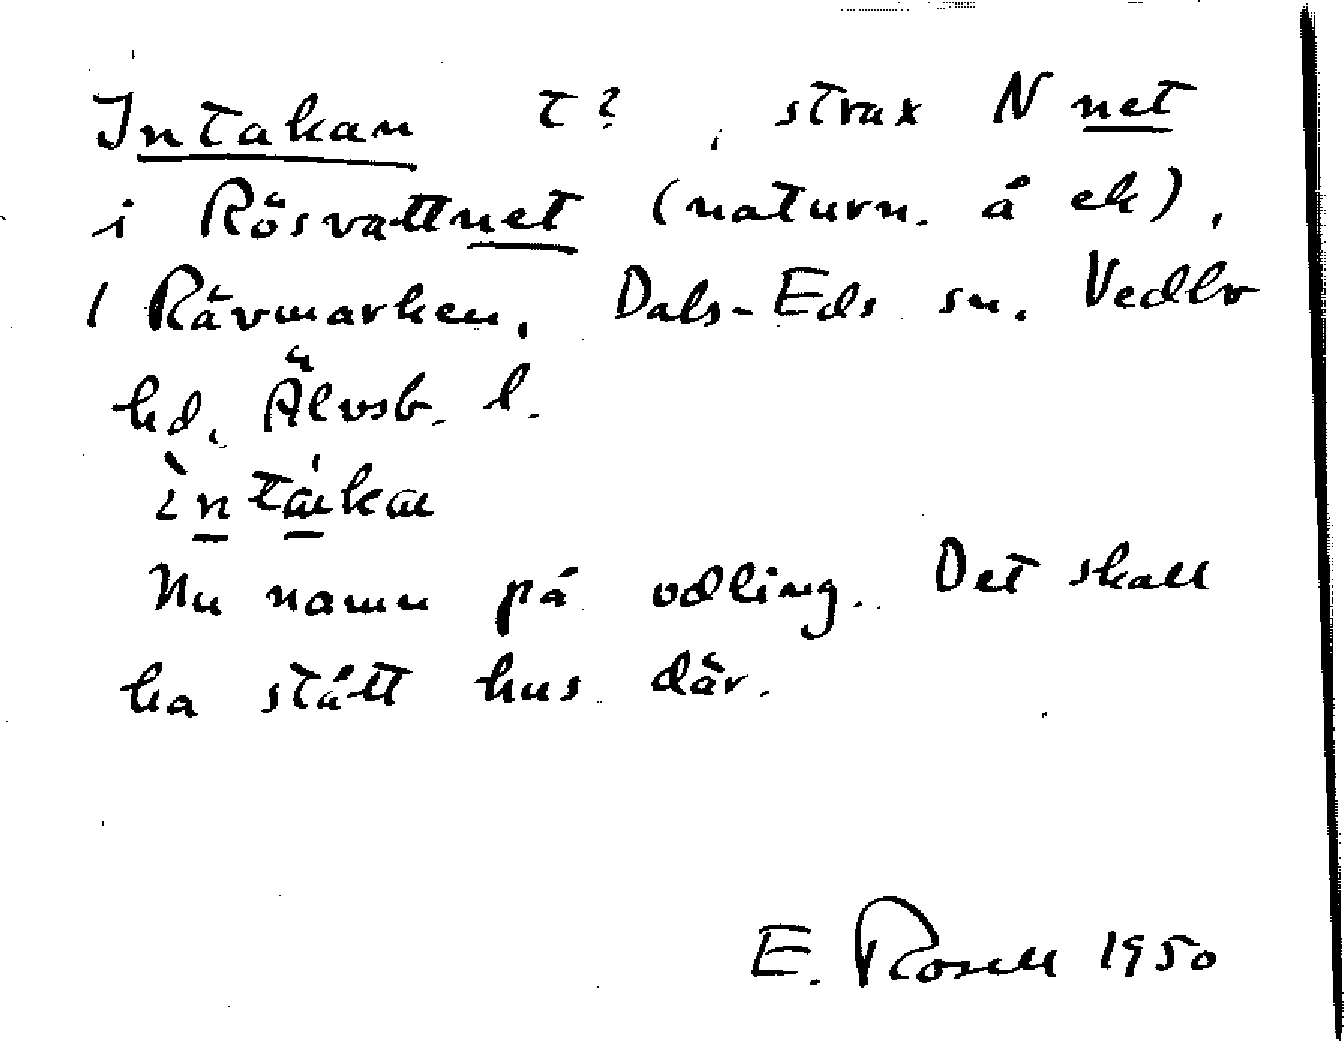 Intakan t?, strax N net
i Rösvattnet (naturn. å ek),
1 Rävmarken, Dals-Eds sn. Vedbo
hd, Älvsb. l.
ìntákа
Nu namn på odling. Det skall
ha stått hus där.
E. Rosell 1950